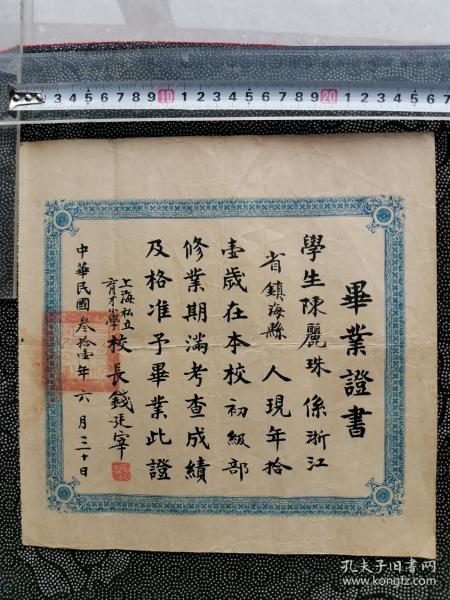 畢業證書
學生陳麗珠係浙江
省鎮海縣人現年拾
壹歲在本校初級部
修業期滿考查成績
及格准予畢業此證
上海私立
育才小學
校長錢廷寀
中華民國叁拾壹年六月三十日
3 4 5 6 7 8 9 10 1 2 3 4 5 6 7 8 9 20 1 2 3 4 5 6 7
孔夫子旧书网
www.kongfz.com